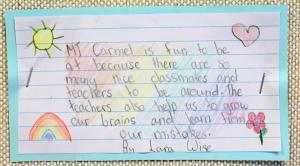 MT Carmel is fun to be
at because there are so
many nice classmates and
teachers to be around. The
teachers also help us to grow
our brains and learn from
our mistakes.
By Lara Wise